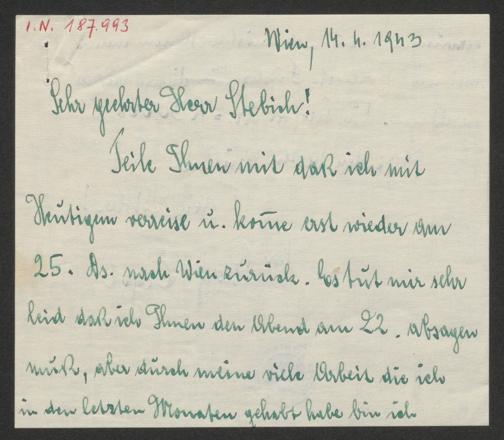 I.N. 187.993
Wien, 14. 4. 1943
Sehr geehrter Herr Stebich!
Teile Ihnen mit daß ich mit
Heutigem verreise u. kom̄e erst wieder am
25. ds. nach Wien zurück. Es tut mir sehr
leid daß ich Ihnen den Abend am 22. absagen
muß, aber durch meine viele Arbeit die ich
in den letzten Monaten gehabt habe bin ich